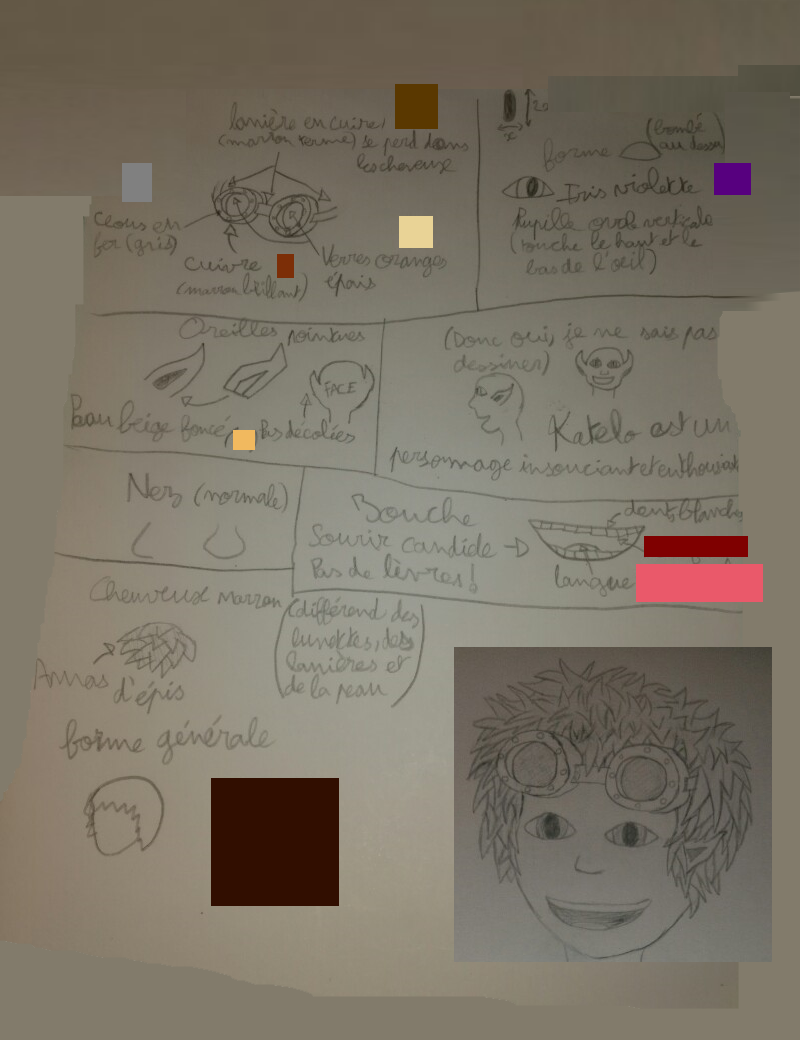 lanière en cuire
(marron terme) se perd dans
les cheveux
Clous en
fer (gris)
Cuivre
(marron brillant)
Verres oranges
épais
2x
x
forme
(bombé
au dessus)
Iris violette
Pupille ovale verticale
(touche le haut et le
bas de l'oeil)
Oreilles pointues
FACE
Peau beige foncé
Pas décolées
(Donc oui, je ne sais pas
dessiner)
Katelo est un
personnage insouciant et enthousiast
Nez (normale)
Bouche
Sourir candide
Pas de lèvres!
dents blanches
langue
Cheuveux marron
(différend des
lunettes, des
lanières et
de la peau)
Amas
d'épis
forme générale